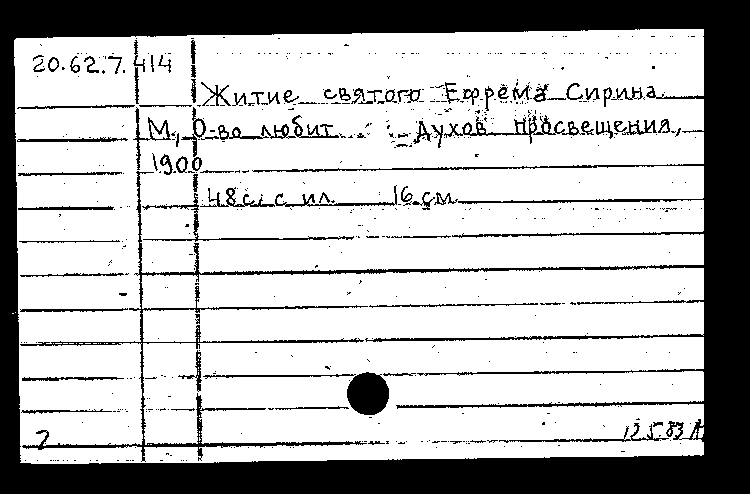 20.62.7.414
Житие святого Ефрема Сирина
М., О-во любит. духов. просвещения,
1900
48 с. с ил. 16 см.
2